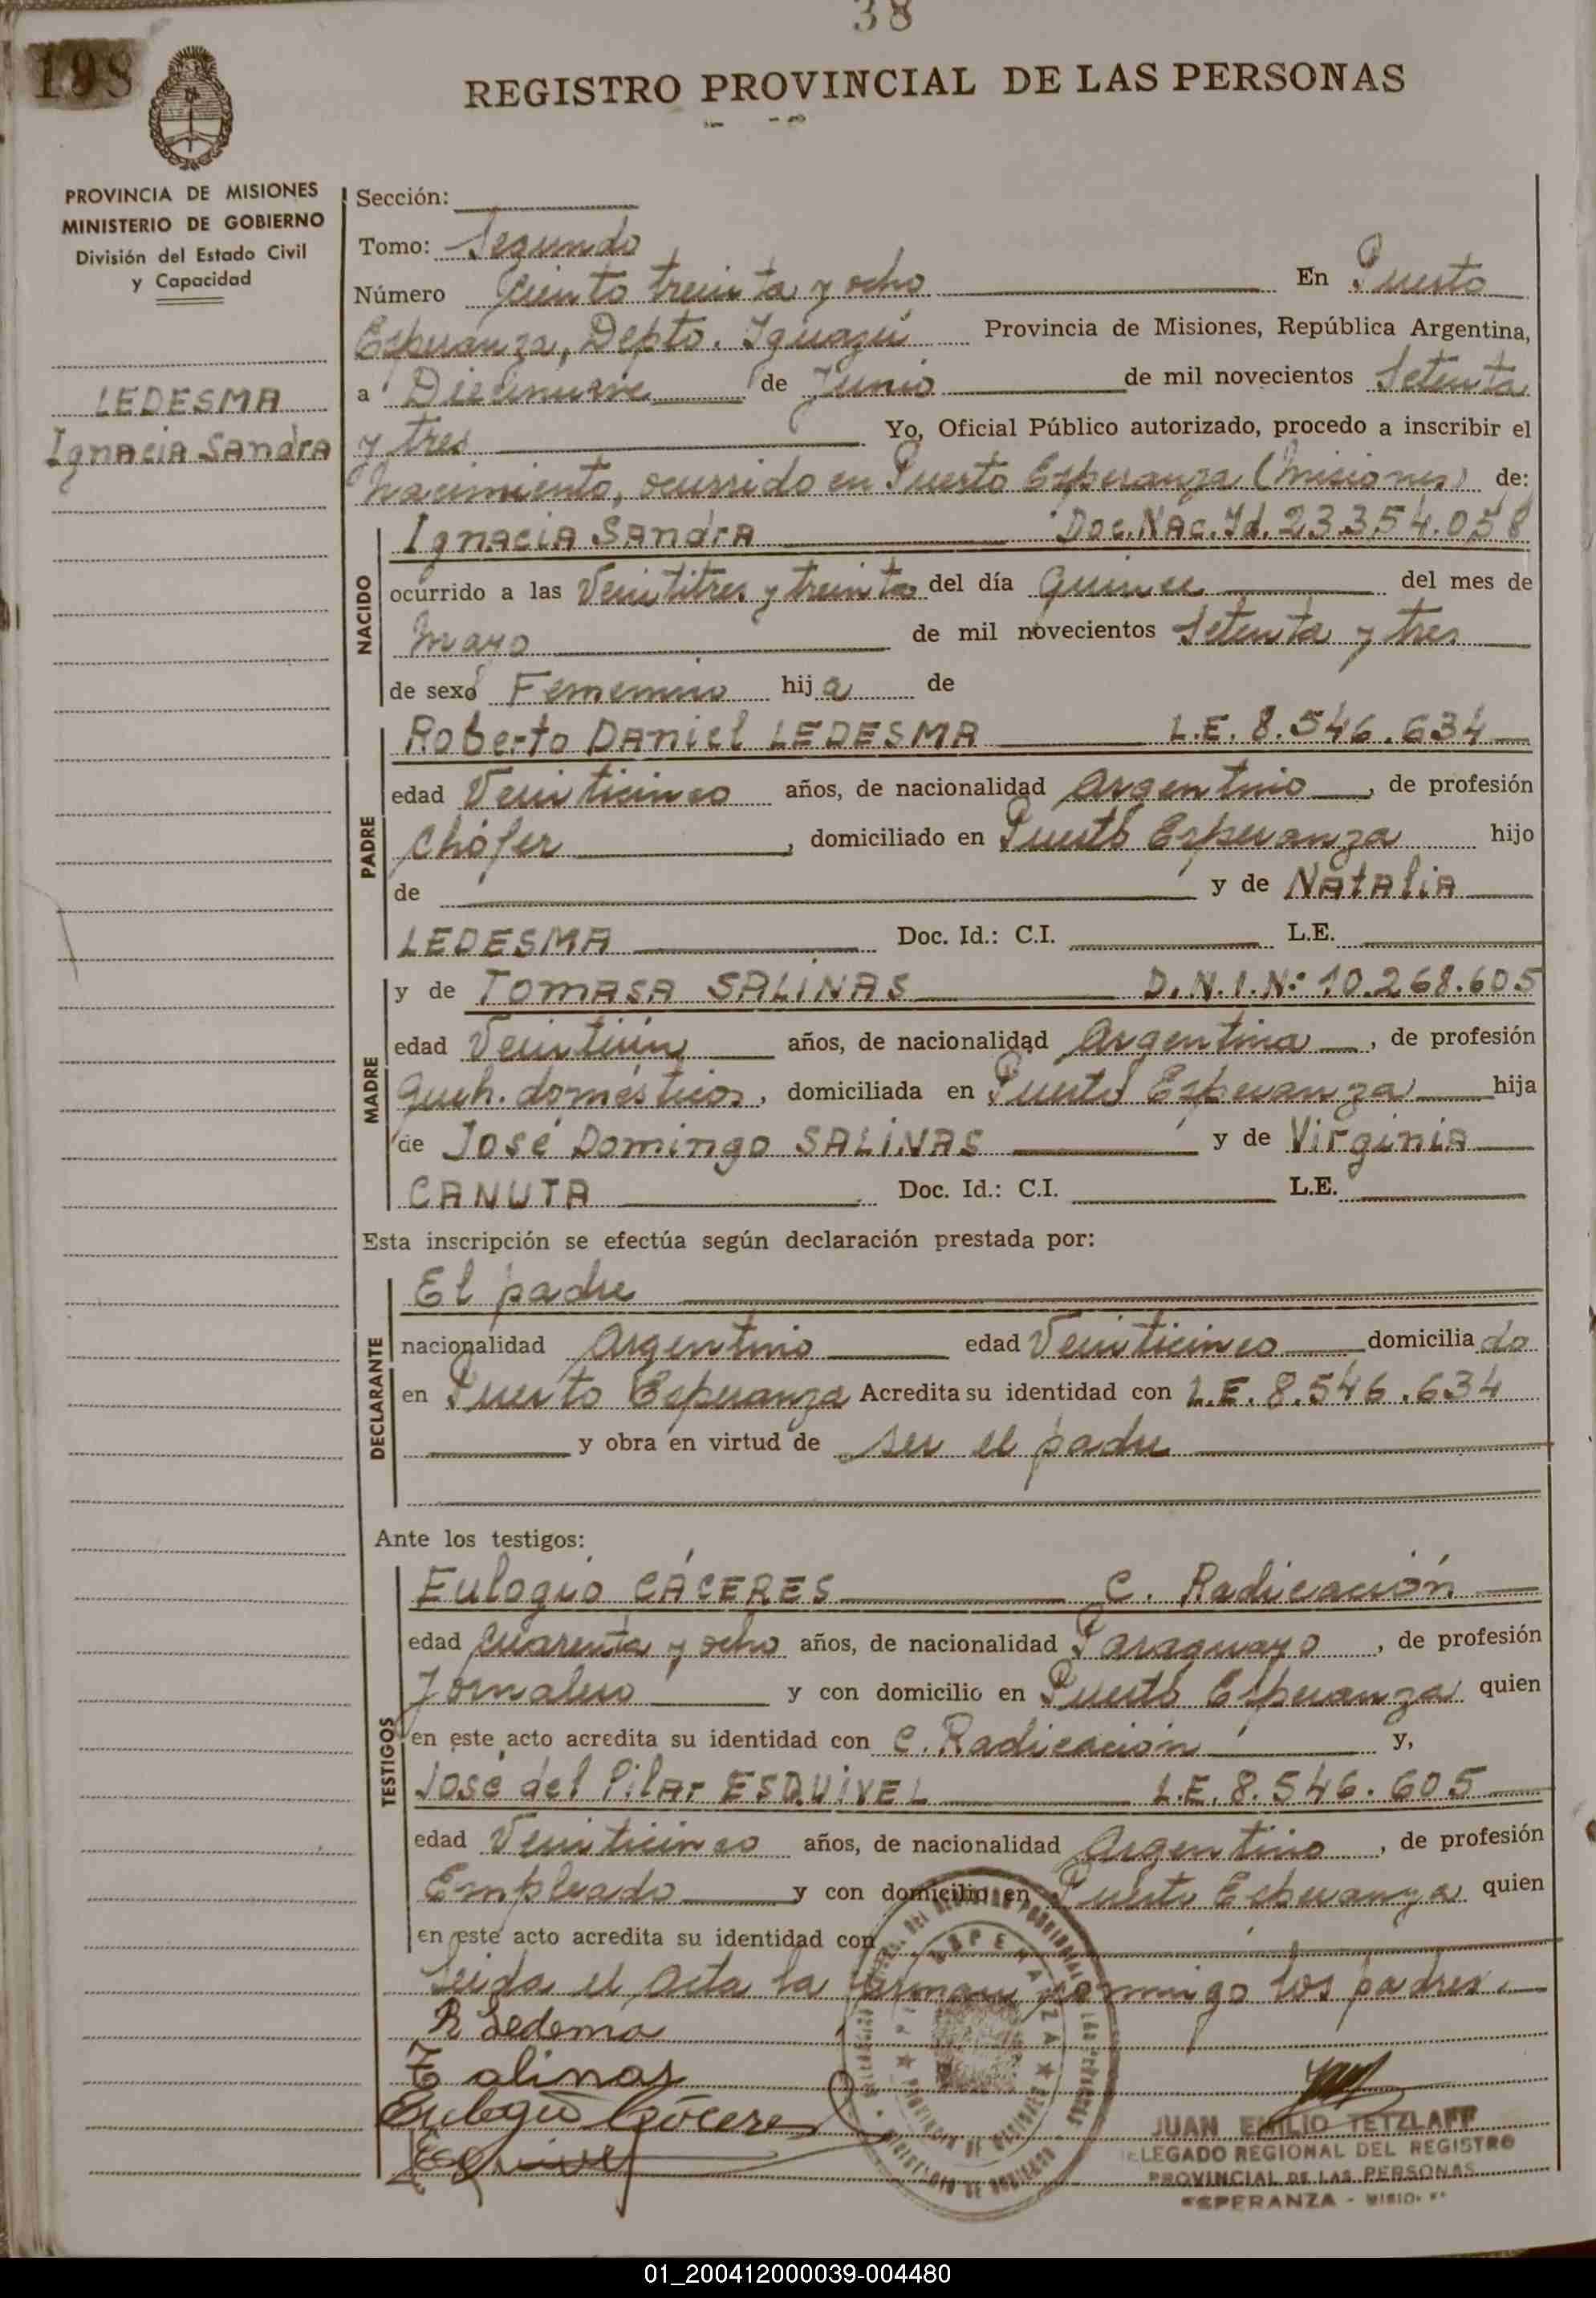 38
198
REGISTRO PROVINCIAL DE LAS PERSONAS
PROVINCIA DE MISIONES
MINISTERIO DE GOBIERNO
División del Estado Civil
y Capacidad
LEDESMA
Ignacia Sandra
Sección:
Tomo: Segundo
Número Ciento treinta y ocho En Puerto
Esperanza, Depto. Iguazú Provincia de Misiones, República Argentina,
a Diecinueve de Junio de mil novecientos Setenta
y tres Yo, Oficial Público autorizado, procedo a inscribir el
Nacimiento, ocurrido en Puerto Esperanza (Misiones) de:
NACIDO
Ignacia Sandra Doc. Nac. Id. 23.354.058
ocurrido a las Veintitres y treinta del día quince del mes de
Mayo de mil novecientos Setenta y tres
de sexo Femenino hija de
PADRE
Roberto Daniel LEDESMA L.E. 8.546.634
edad Veinticinco años, de nacionalidad Argentino, de profesión
Chófer, domiciliado en Puerto Esperanza hijo
de y de Natalia
LEDESMA Doc. Id.: C.I. L.E.
MADRE
y de Tomasa SALINAS D.N.I. Nº 10.268.605
edad Veintiún años, de nacionalidad Argentina, de profesión
Queh. domésticos, domiciliada en Puerto Esperanza hija
de José Domingo SALINAS y de Virginia
CANUTA Doc. Id.: C.I. L.E.
Esta inscripción se efectúa según declaración prestada por:
DECLARANTE
El padre
nacionalidad Argentino edad Veinticinco domiciliado
en Puerto Esperanza Acredita su identidad con L.E. 8.546.634
y obra en virtud de ser el padre
Ante los testigos:
TESTIGOS
Eulogio CÁCERES C. Radicación
edad cuarenta y ocho años, de nacionalidad Paraguayo, de profesión
Jornalero y con domicilio en Puerto Esperanza quien
en este acto acredita su identidad con C. Radicación y,
José del Pilar ESQUIVEL L.E. 8.546.605
edad Veinticinco años, de nacionalidad Argentino, de profesión
Empleado y con domicilio en Puerto Esperanza quien
en este acto acredita su identidad con
Leida el Acta la firman conmigo los padres.
R Ledema
T alinas
Eulogio Cáceres
Esquivel
JUAN EMILIO TETZLAFF
DELEGADO REGIONAL DEL REGISTRO
PROVINCIAL DE LAS PERSONAS
ESPERANZA -
01_200412000039-004480